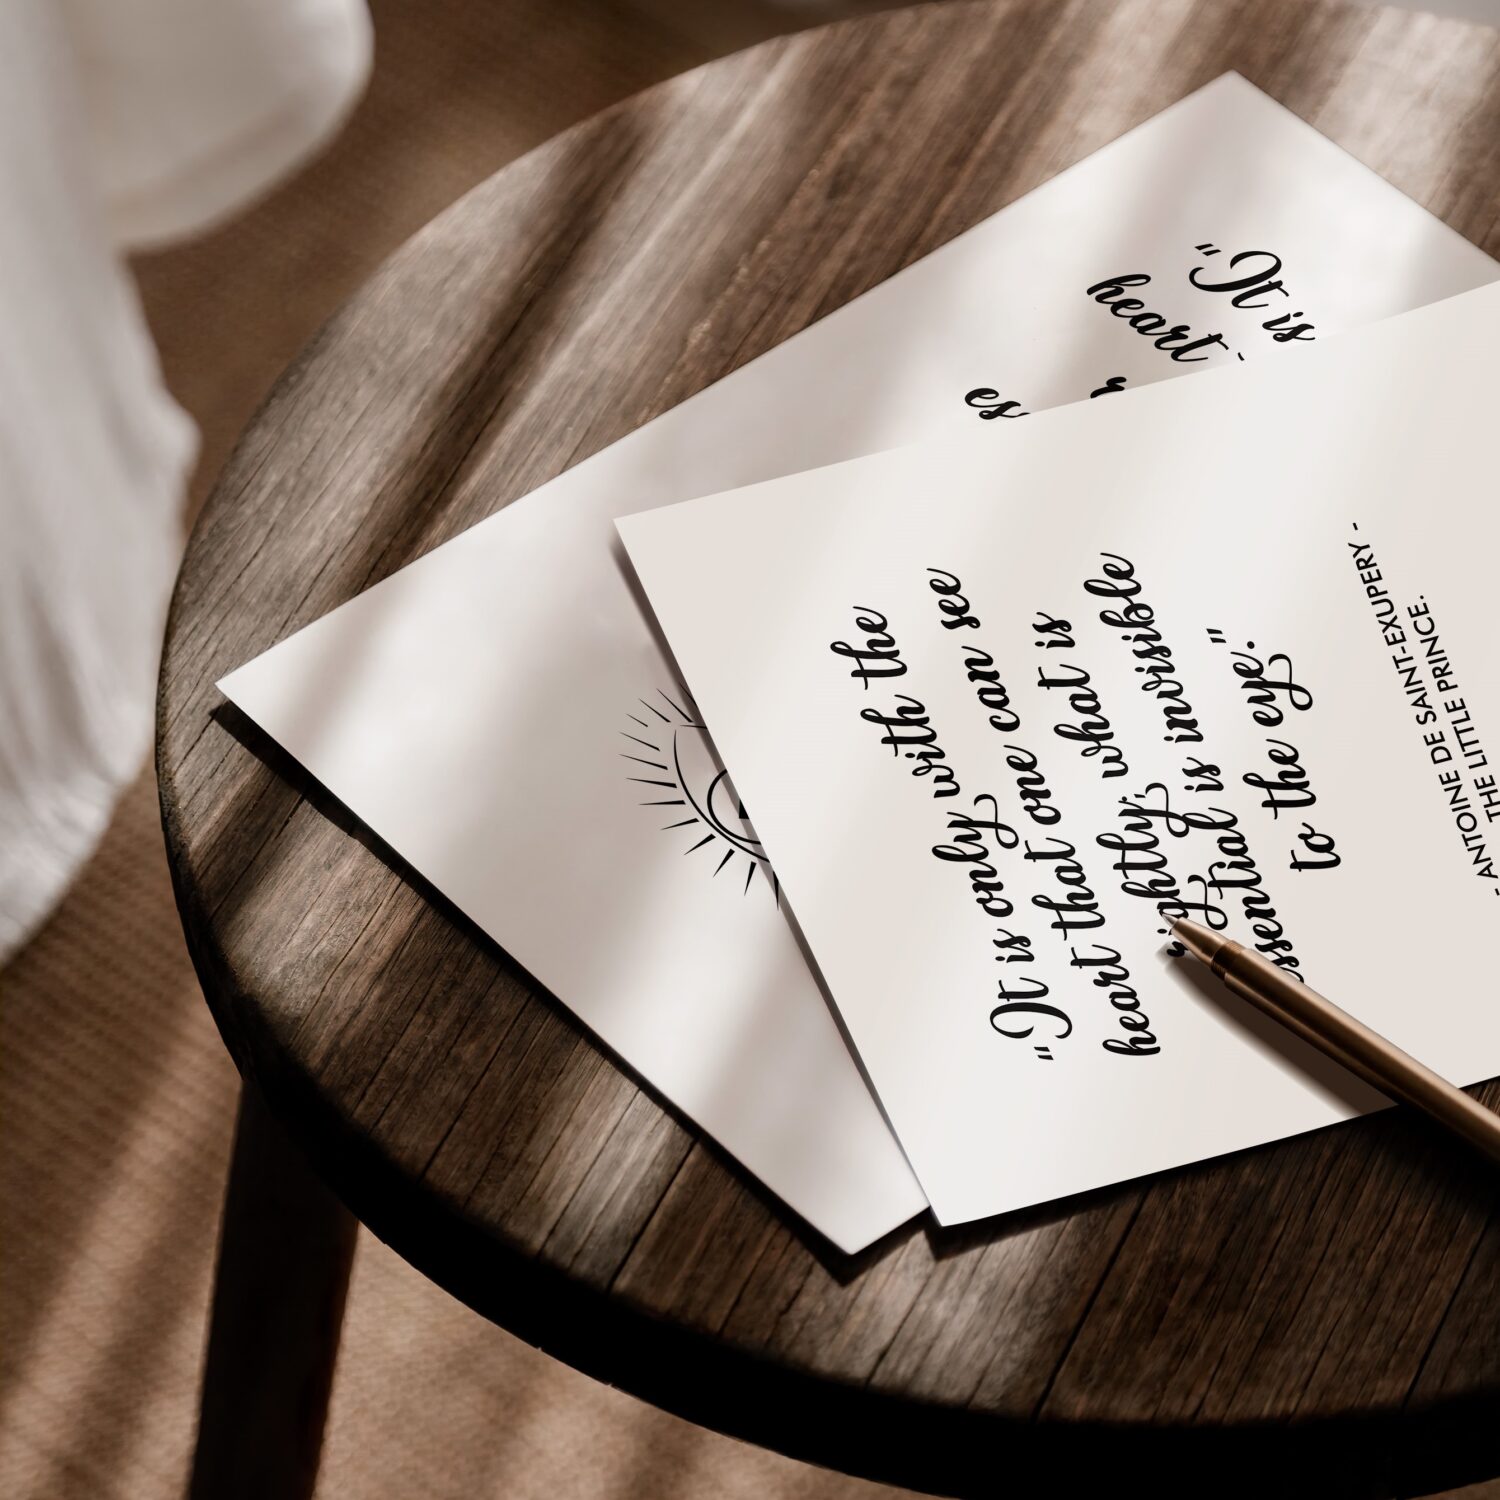 "It is only with the
heart that one can see
rightly; what is
ssential is invisible
to the eye."
- ANTOINE DE SAINT-EXUPERY -
THE LITTLE PRINCE.
"It is
heart
r
es